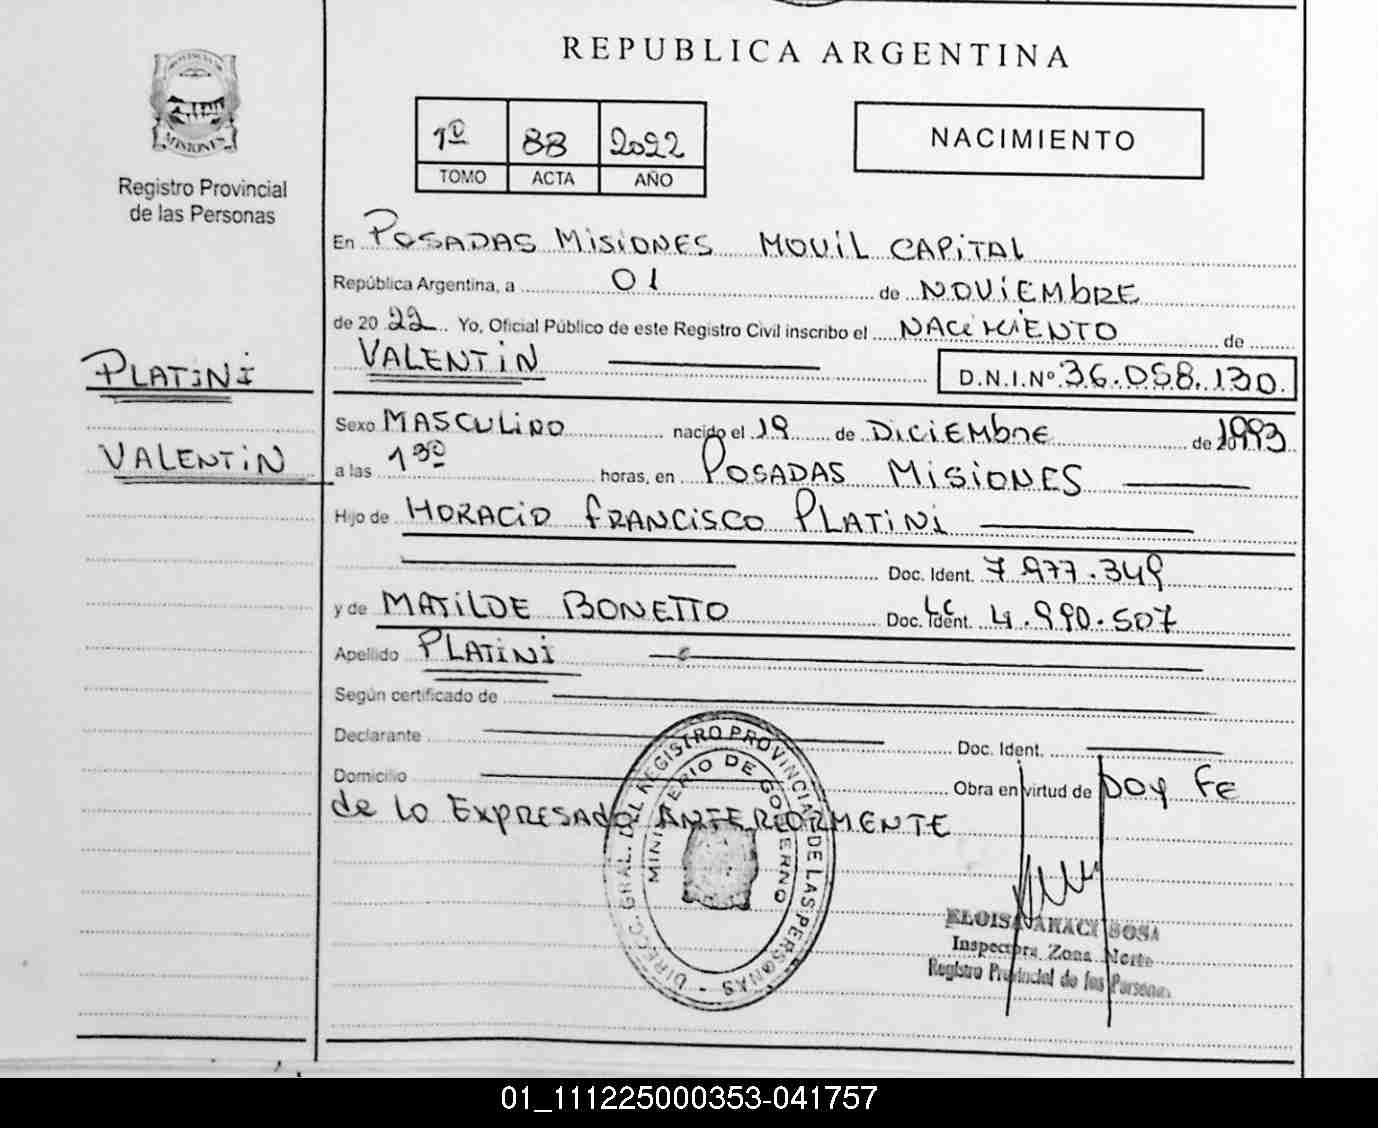 REPUBLICA ARGENTINA
PROVINCIA DE
MISIONES
Registro Provincial
de las Personas
1º 88 2022
TOMO ACTA AÑO
NACIMIENTO
En POSADAS MISIONES MOVIL CAPITAL
República Argentina, a 01 de NOVIEMbRE
de 2022 Yo, Oficial Público de este Registro Civil inscribo el NACIMIENTO de
VALENTIN D.N.I.Nº 36.058.130.
PLATINI
VALENTIN
Sexo MASCULINO nacido el 19 de DICIEMbRE de 1993
a las 1³⁰ horas, en POSADAS MISIONES
Hijo de HORACIO FRANCISCO PLATINI
Doc. Ident. 7.977.349
y de MATILDE BONETTO Doc. Ident. LC 4.990.507
Apellido PLATINI
Según certificado de
Declarante Doc. Ident.
Domicilio Obra en virtud de DOY FE
de lo EXPRESADO ANTERIORMENTE
DIRECC. GRAL. DEL REGISTRO PROVINCIAL DE LAS PERSONAS -
MINISTERIO DE GOBIERNO
Inspectora Zona Norte
Registro Provincial de las Personas
01_111225000353-041757